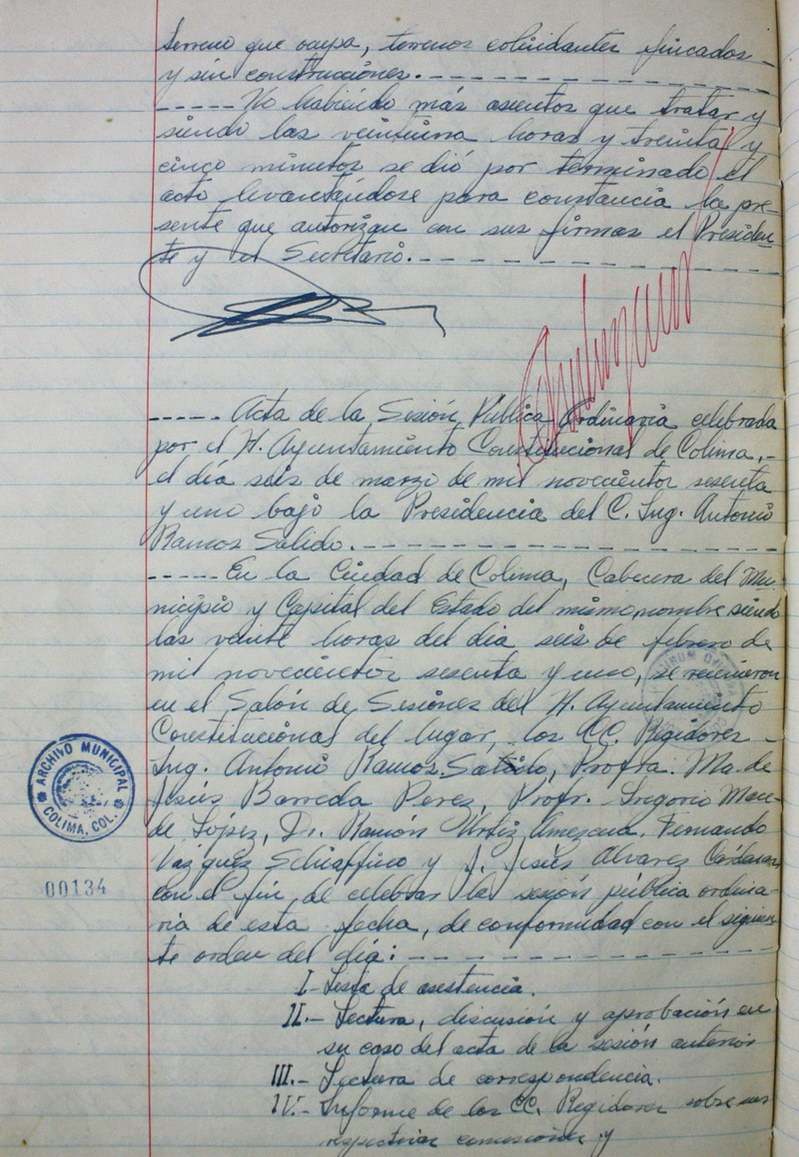 terreno que ocupa, terrenos colindantes fincados
y sin construcciones.
----- No habiendo más asientos que tratar y
siendo las veintiuna horas y treinta y
cinco minutos se dió por terminado el
acto levantándose para constancia la pre-
sente que autorizan con sus firmas el Presiden-
te y el Secretario.
----- Acta de la Sesión Pública Ordinaria celebrada
por el H. Ayuntamiento Constitucional de Colima,-
el día seis de marzo de mil novecientos sesenta
y uno bajo la Presidencia del C. Ing. Antonio
Ramos Salido.
----- En la Ciudad de Colima, Cabecera del Mu-
nicipio y Capital del Estado del mismo nombre siendo
las veinte horas del día seis de febrero de
mil novecientos sesenta y uno, se reunieron
en el Salón de Sesiones del H. Ayuntamiento
Constitucional del lugar, los CC. Regidores -
Ing. Antonio Ramos Salido, Profra. Ma. de
Jesús Barreda Peres, Profr. Gregorio Mace-
do López, Dr. Ramón Ortiz Amezcua, Fernando
Vázquez Schiaffino y J. Jesús Alvarez Cárdenas
con el fin de celebrar la sesión pública ordina-
ria de esta fecha, de conformidad con el siguien-
te orden del día:
I- Lista de asistencia.
II.- Lectura, discusión y aprobación en
su caso del acta de la sesión anterior
III.- Lectura de correspondencia.
IV.- Informe de los CC. Regidores sobre sus
respectivas comisiones y
ARCHIVO MUNICIPAL
COLIMA, COL.
00134